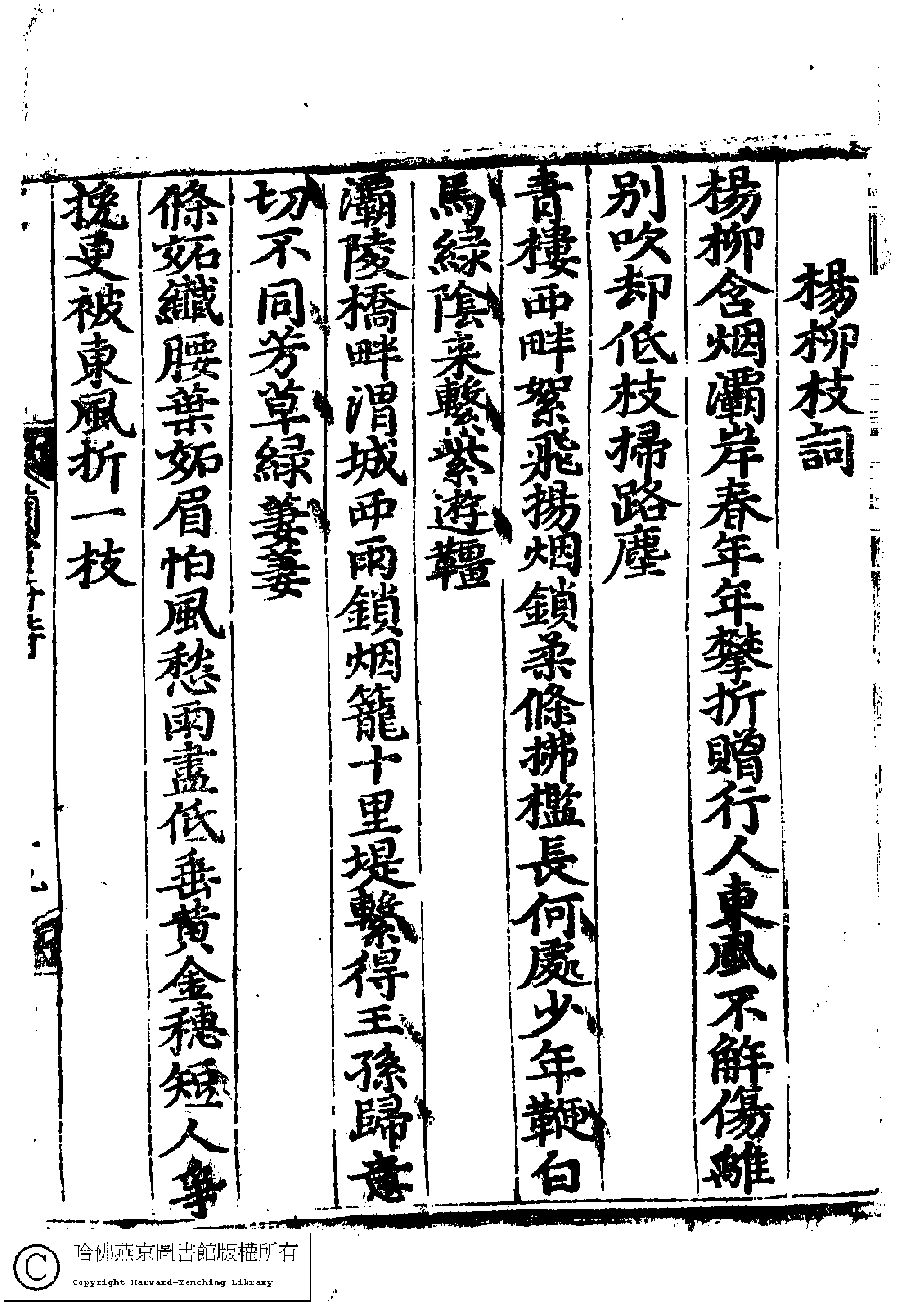 楊柳枝詞
楊柳含烟灞岸春年年攀折贈行人東風不解傷離
别吹却低枝掃路塵
青樓西畔絮飛揚烟鎖柔條拂檻長何處少年鞭白
馬緑陰来繫紫遊韁
灞陵橋畔渭城西雨鎖烟籠十里堤繫得王孫歸意
切不同芳草緑萋萋
條妬纖腰葉妬眉怕風愁雨盡低垂黄金穗短人爭
挽更被東風折一枝
哈佛燕京圖書館版權所有
Copyright Harvard-Yenching Library